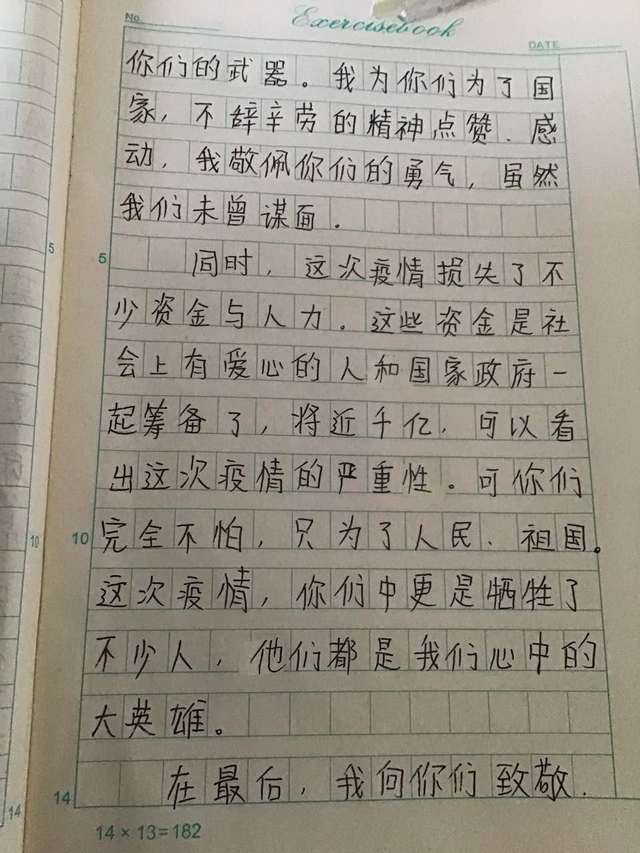 No.
Exercisebook
DATE
你们的武器。我为你们为了国
家，不辞辛劳的精神点赞、感
动，我敬佩你们的勇气，虽然
我们未曾谋面.
5
5
同时，这次疫情损失了不
少资金与人力。这些资金是社
会上有爱心的人和国家政府一
起筹备了，将近千亿.可以看
出这次疫情的严重性。可你们
10
10
完全不怕，只为了人民、祖国。
这次疫情，你们中更是牺牲了
不少人，他们都是我们心中的
大英雄。
14
14
在最后，我向你们致敬.
14×13=182